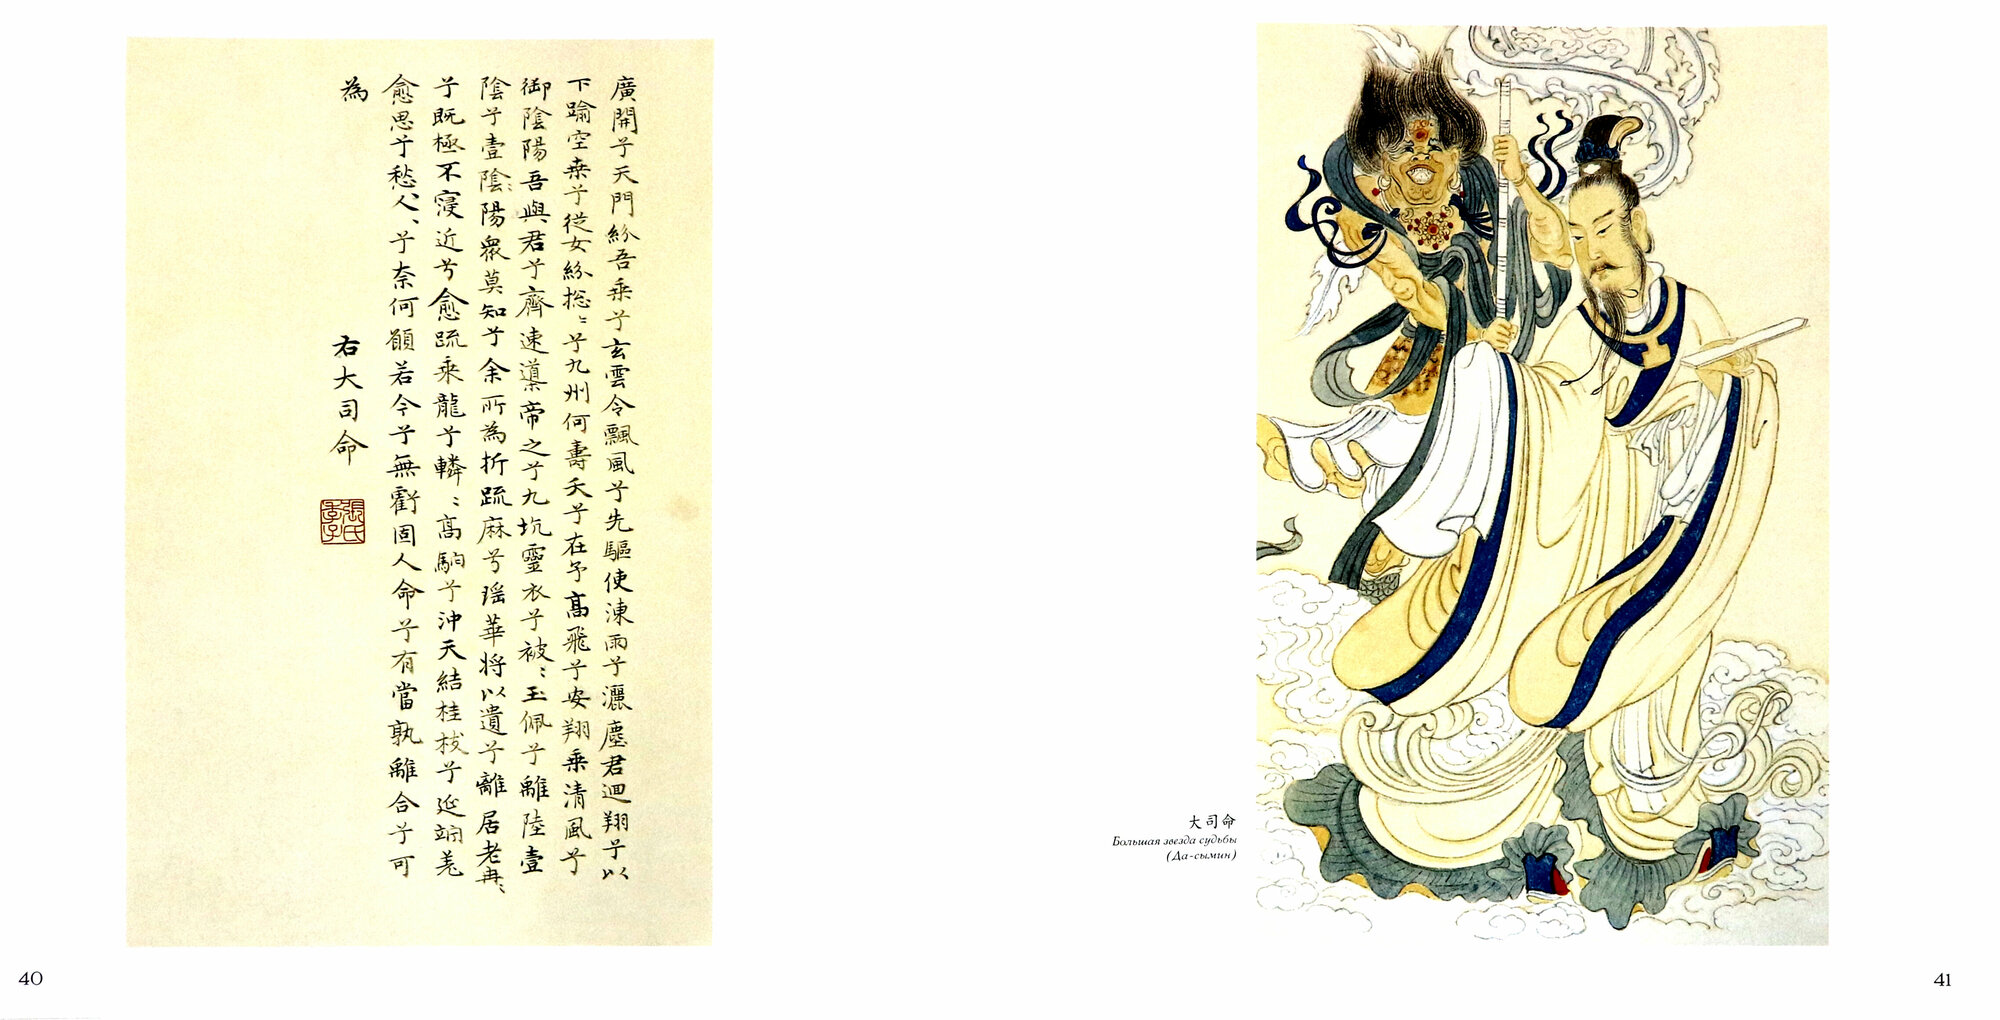 廣開兮天門紛吾乘兮玄雲令飄風兮先驅使涷雨兮灑塵君迴翔兮以
下踰空桒兮從女紛捴〻兮九州何壽夭兮在予高飛兮安翔乘清風兮
御陰陽吾與君兮齊速導帝之兮九坑靈衣兮被〻玉佩兮離陸壹
陰兮壹陰〻陽衆莫知兮余所為折疏麻兮瑤華將以遺兮離居老冉〻
兮既極不寖近兮愈疏乘龍兮轔〻高駒兮沖天結桂枝兮延竚羌
愈思兮愁人〻兮奈何願若今兮無虧固人命兮有當孰離合兮可
為
右大司命
張氏季子
40
大司命
Большая звезда судьбы
(Да-сымин)
41